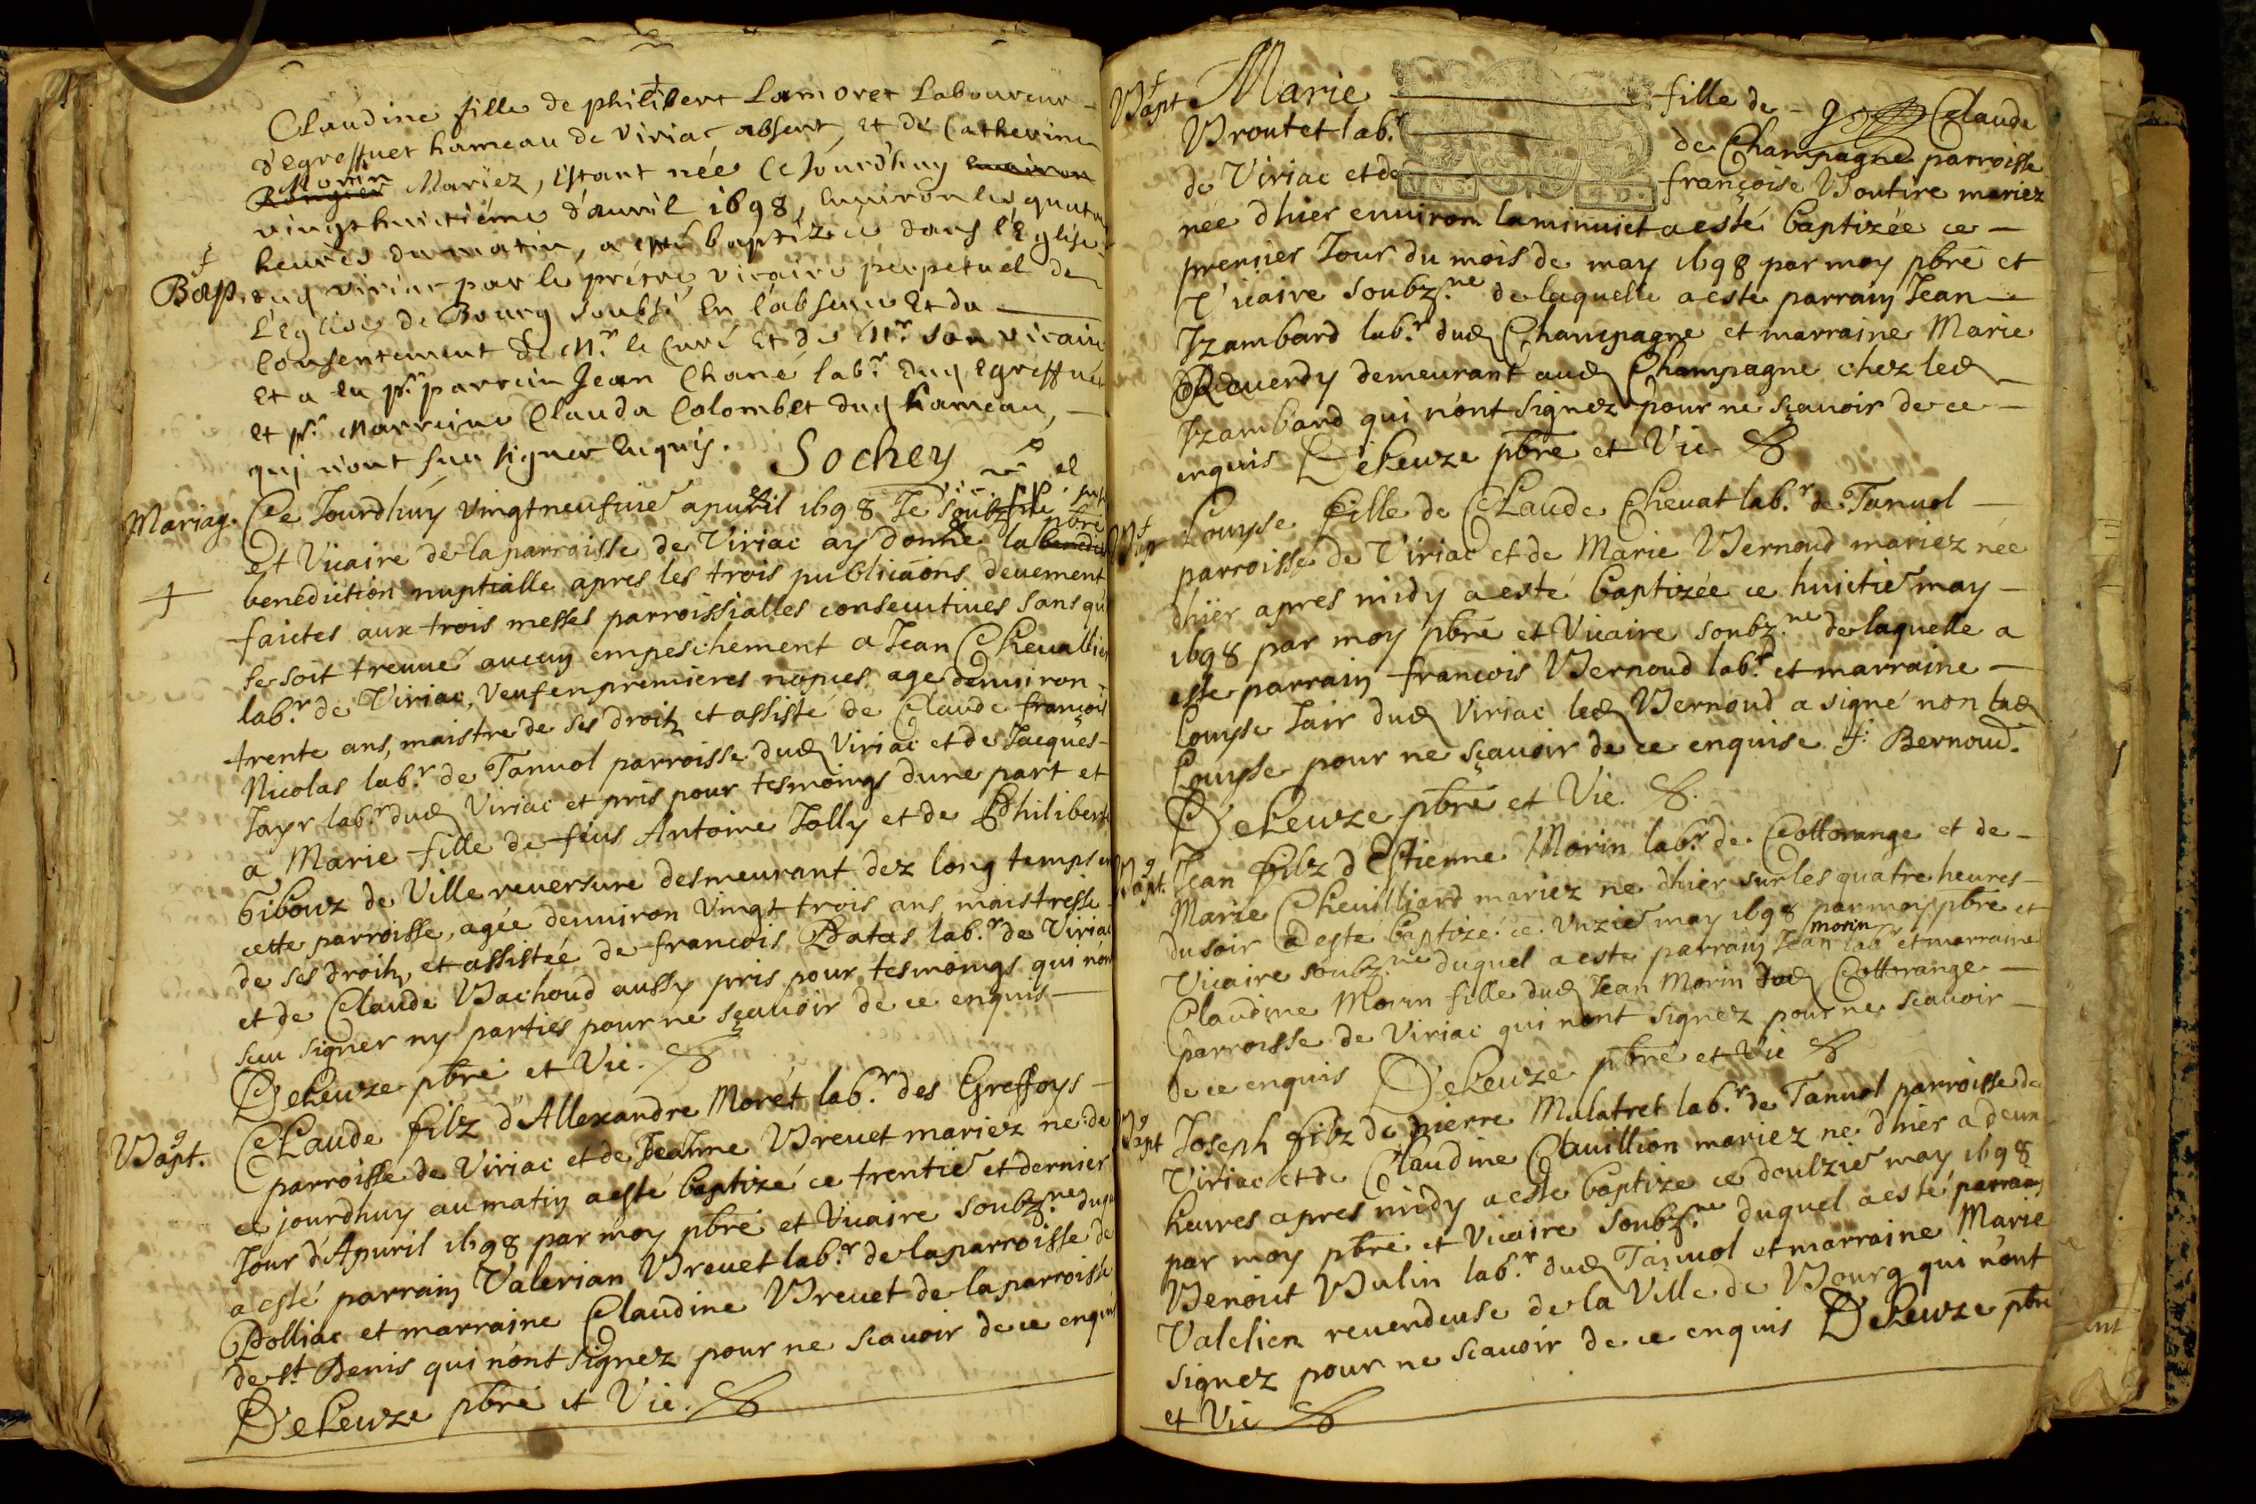 Claudine fille de philibert Lamoret Laboureur
d'Egreffuet hameau de Viriac absent, et de Catherine
Morin Mariez, estant née Ce Jourd'huy
vingt huictiéme d'auril 1698, enuiron les quatre
heures du matin, a esté baptizée dans l'Eglise
Bap. dud viriac par le prétre vicaire perpetuel de
L'Eglise de Bourg soubsé En l'absence Et du
Consentement de Mr. le Curé Et de Mr. son vicaire
Et a eu pr. parrain Jean Chané labr. dud Egreffuet
et pr. Marraine Clauda Colombet dud hameau,
quj n'ont sceu signer Enquis. Sochey
Mariag. Ce Jourdhuy vingtneufuie apuril 1698 Je Soubz.né pbre
et Vicaire de la parroisse de Viriac ay donné la benedi
benediction nuptialle apres les trois publicaons deuement
faictes aux trois messes parroissialles consecutiues sans qu'il
se soit treuué aucun empeschement a Jean Cheuallier
labr. de Viriac, Veuf en premieres nopces age denuiron
trente ans, maistre de ses droitz et assisté de Claude françois
Nicolas labr. de Tanuol parroisse dud Viriac et de Jacques
Jayr labr. dud Viriac et pris pour tesmoings dune part et
a Marie fille de feus Antoine Jolly et de Philiberte
Gibouz de Ville reuersure desmeurant dez long temps en
cette parroisse, agée denuiron Vingt trois ans maistresse
de ses droitz, et assistée de francois Patas labr. de Viriac
et de Claude Bachoud aussy pris pour tesmoings qui n'ont
sceu signer ny parties pour ne sçauoir de ce enquis
Deheuze pbre et Vic.
Bapt. Claude filz d'Allexandre Morét labr. des Greffoys
parroisse de Viriac et de Jeanne Breuet mariez ne de
ce jourdhuy au matin a esté baptizé ce trentie et dernier
Jour d'Apuril 1698 par moy pbre et Vicaire soubz.ne duquel
a esté parrain Valerian Breuet labr. de la parroisse de
Polliac et marraine Claudine Breuet de la parroisse
de st Denis qui n'ont signez pour ne scauoir de ce enquis
Deheuze pbre et Vic.
Bapt Marie fille de Claude
Broutet labr. de Champagne parroisse
de Viriac et de françoise Boutire mariez
née d'hier enuiron la minuict a esté baptizée ce
premier Jour du mois de may 1698 par moy pbre et
Vicaire soubz.ne de laquelle a este parrain Jean
Jzambard labr. dud Champagne et marraine Marie
Reuerdy demeurant aud Champagne chez led
Jzambard qui n'ont signez pour ne sçauoir de ce
enquis Deheuze pbre et Vic.
Bap Louyse fille de Claude Cheuat labr. de Tanuol
parroisse de Viriac et de Marie Bernoud mariez née
d'hier apres midy a esté baptizée ce huictie may
1698 par moy pbre et Vicaire soubz.ne de laquelle a
este parrain francois Bernoud labr. et marraine
Louyse Jair dud Viriac led Bernoud a signé non lad
Louyse pour ne sçauoir de ce enquise f. Bernoud.
Deheuze pbre et Vic.
Bapt. Jean filz d'Estienne Morin labr. de Cottorange et de
Marie Cheuilliard mariez ne d'hier sur les quatre heures
du soir a esté baptizé ce Unzie may 1698 par moy pbre et
Vicaire soubz.ne duquel a este parrain Jean morin labr et marraine
Claudine Morin fille dud Jean Morin dud Cottorange
parroisse de Viriac qui n'ont signez pour ne scauoir
de ce enquis Deheuze pbre et Vic
Bapt Joseph filz de pierre Mulatret labr. de Tanuol parroisse de
Viriac et de Claudine Cauillion mariez ne d'hier a deux
heures apres midy a este baptize ce doulzie may 1698
par moy pbre et Vicaire soubz.ne duquel a esté parrain
Benoist Bulin labr. dud Tanuol et marraine Marie
Valelien reuendeuse de la Ville de Bourg qui n'ont
signez pour ne scauoir de ce enquis Deheuze pbre
et Vic